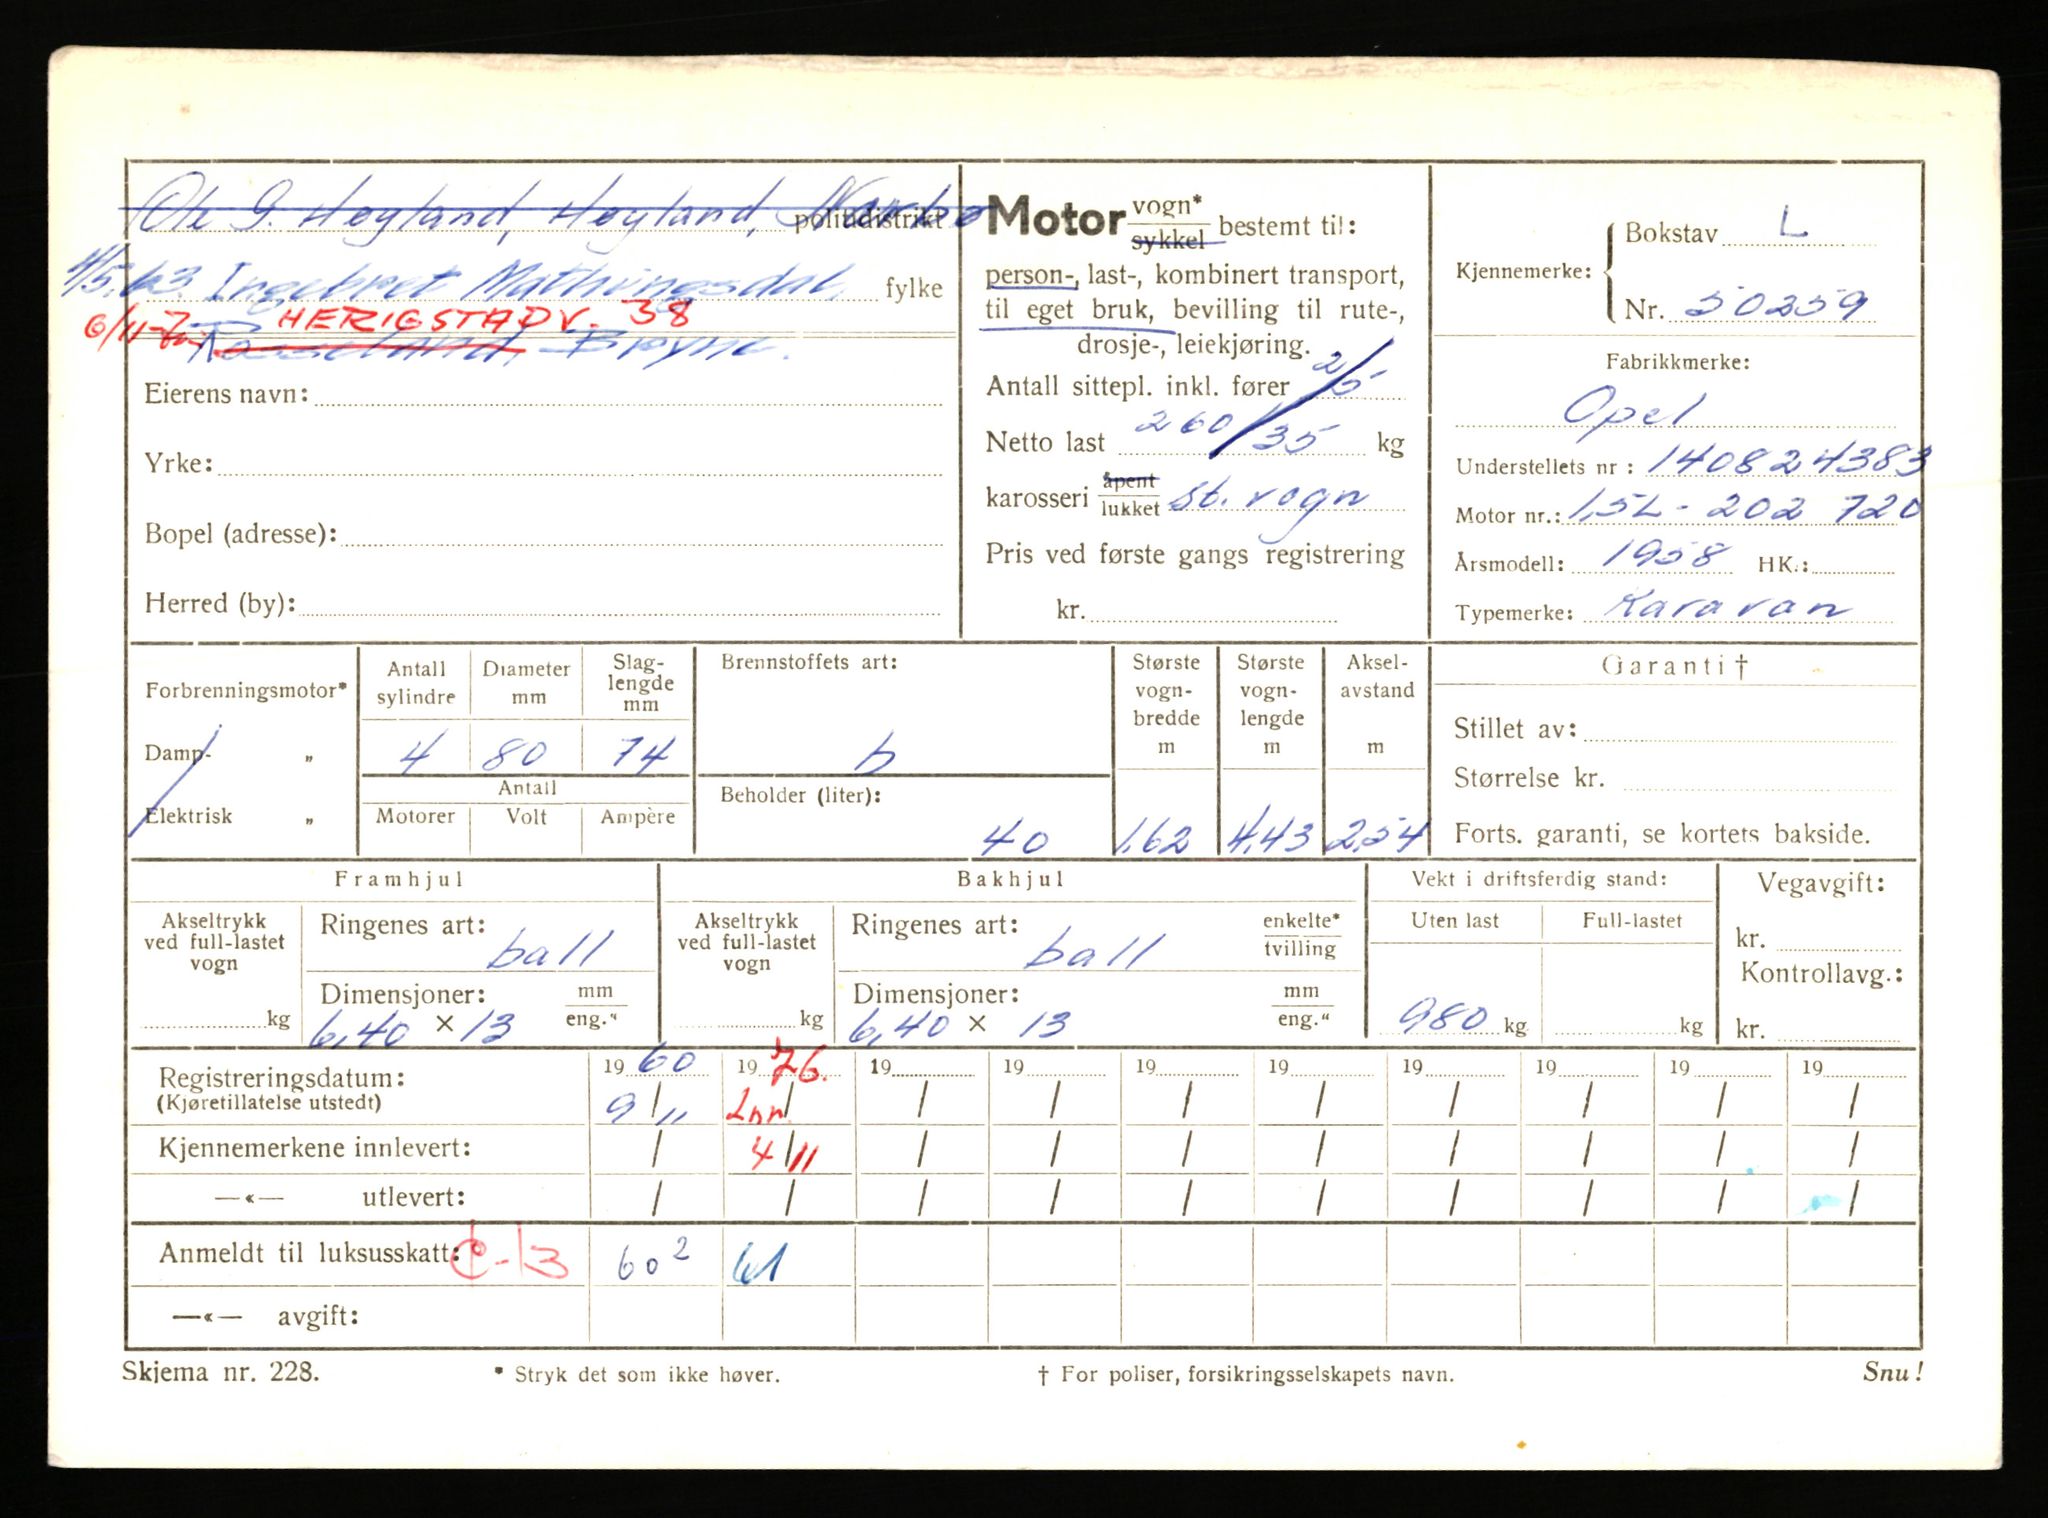 Ole G. Høyland, Høyland, Nærbø
politidistrikt
4/5.63. Ingebret Mathingsdal,
fylke
6/11-7 HERIGSTADV. 38
Bryne.
Eierens navn:
Yrke:
Bopel (adresse):
Herred (by):
Motor vogn* sykkel bestemt til:
person-, last-, kombinert transport,
til eget bruk, bevilling til rute-,
drosje-, leiekjøring.
Antall sittepl. inkl. fører 2/5
Netto last 260/35 kg
karosseri åpent lukket st. vogn
Pris ved første gangs registrering
kr.
Kjennemerke: Bokstav L
Nr. 50259
Fabrikkmerke:
Opel
Understellets nr : 140824383
Motor nr.: 1,5L - 202 720
Årsmodell: 1958 HK.:
Typemerke: Karavan
Forbrenningsmotor*
Damp- „
Elektrisk „
Antall sylindre
Diameter mm
Slag-lengde mm
4 80 74
Antall
Motorer Volt Ampère
Brennstoffets art:
b
Beholder (liter):
40
Største vogn-bredde m
1,62
Største vogn-lengde m
4,43
Aksel-avstand m
2,54
Garanti †
Stillet av:
Størrelse kr.
Forts. garanti, se kortets bakside.
Framhjul
Akseltrykk ved full-lastet vogn
kg
Ringenes art: ball
Dimensjoner: mm eng.“
6,40 × 13
Bakhjul
Akseltrykk ved full-lastet vogn
kg
Ringenes art: ball enkelte* tvilling
Dimensjoner: mm eng.“
6,40 × 13
Vekt i driftsferdig stand:
Uten last Full-lastet
980 kg kg
Vegavgift:
kr.
Kontrollavg.:
kr.
Registreringsdatum: 19 60 19 76. 19 19 19 19 19 19 19 19
(Kjøretillatelse utstedt) 9/11 Inn / / / / / / / / /
Kjennemerkene innlevert: / 4/11 / / / / / / / /
—«— utlevert: / / / / / / / / / /
Anmeldt til luksusskatt: C-13 60² 61
—«— avgift:
Skjema nr. 228. * Stryk det som ikke høver. † For poliser, forsikringsselskapets navn. Snu!